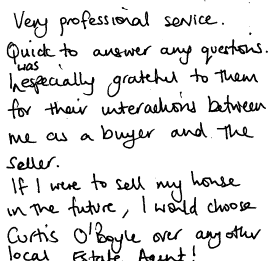 Very professional service.
Quick to answer any questions.
was
I especially grateful to them
for their interactions between
me as a buyer and the
seller.
If I were to sell my house
in the future, I would choose
Curtis O'Boyle over any other
local Estate Agent!